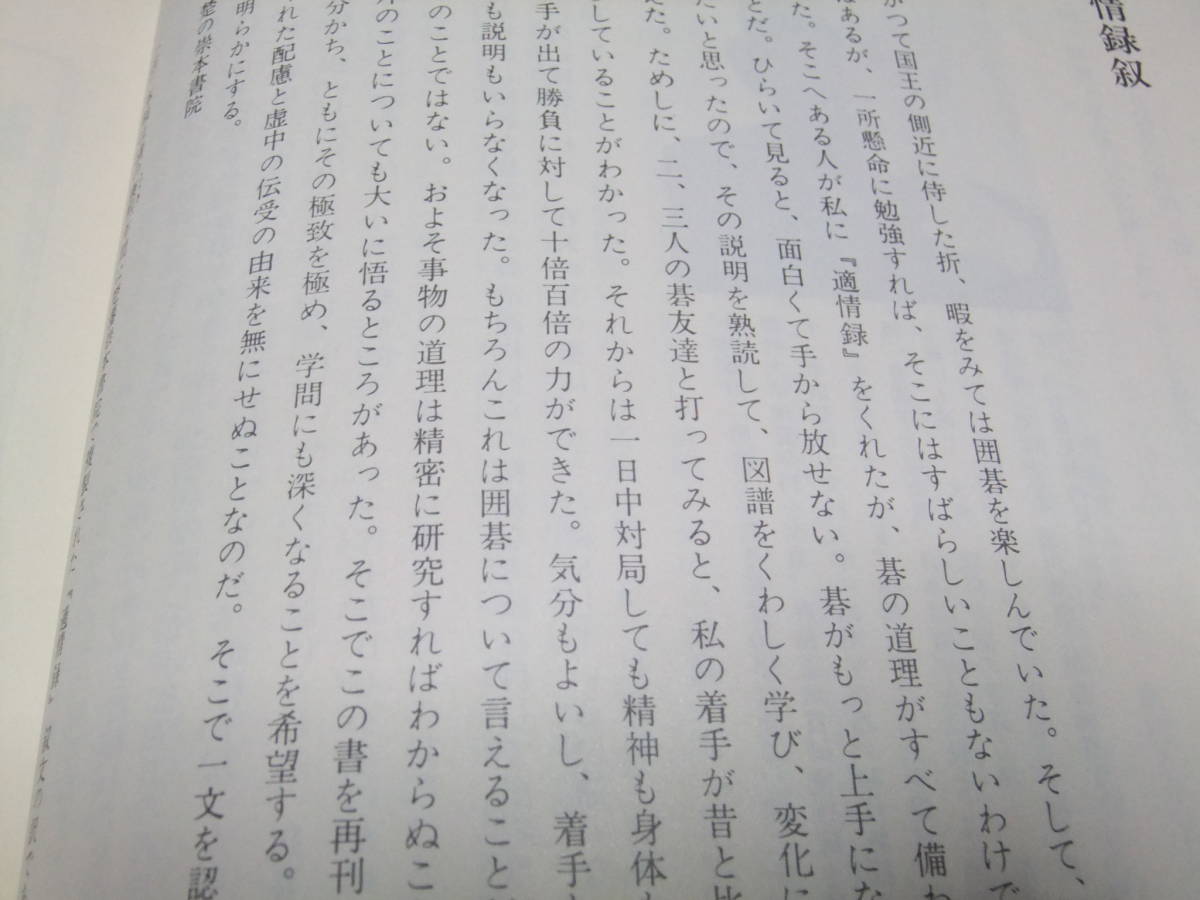 情録叙
かつて国王の側近に侍した折、暇をみては囲碁を楽しんでいた。そして、
はあるが、一所懸命に勉強すれば、そこにはすばらしいこともないわけで
た。そこへある人が私に『適情録』をくれたが、碁の道理がすべて備わ
とだ。ひらいて見ると、面白くて手から放せない。碁がもっと上手にな
たいと思ったので、その説明を熟読して、図譜をくわしく学び、変化に
えた。ためしに、二、三人の碁友達と打ってみると、私の着手が昔と比
していることがわかった。それからは一日中対局しても精神も身体も
手が出て勝負に対して十倍百倍の力ができた。気分もよいし、着手も
も説明もいらなくなった。もちろんこれは囲碁について言えること
のことではない。およそ事物の道理は精密に研究すればわからぬこ
外のことについても大いに悟るところがあった。そこでこの書を再刊
分かち、ともにその極致を極め、学問にも深くなることを希望する。
れた配慮と虚中の伝受の由来を無にせぬことなのだ。そこで一文を認
明らかにする。
楚の崇本書院